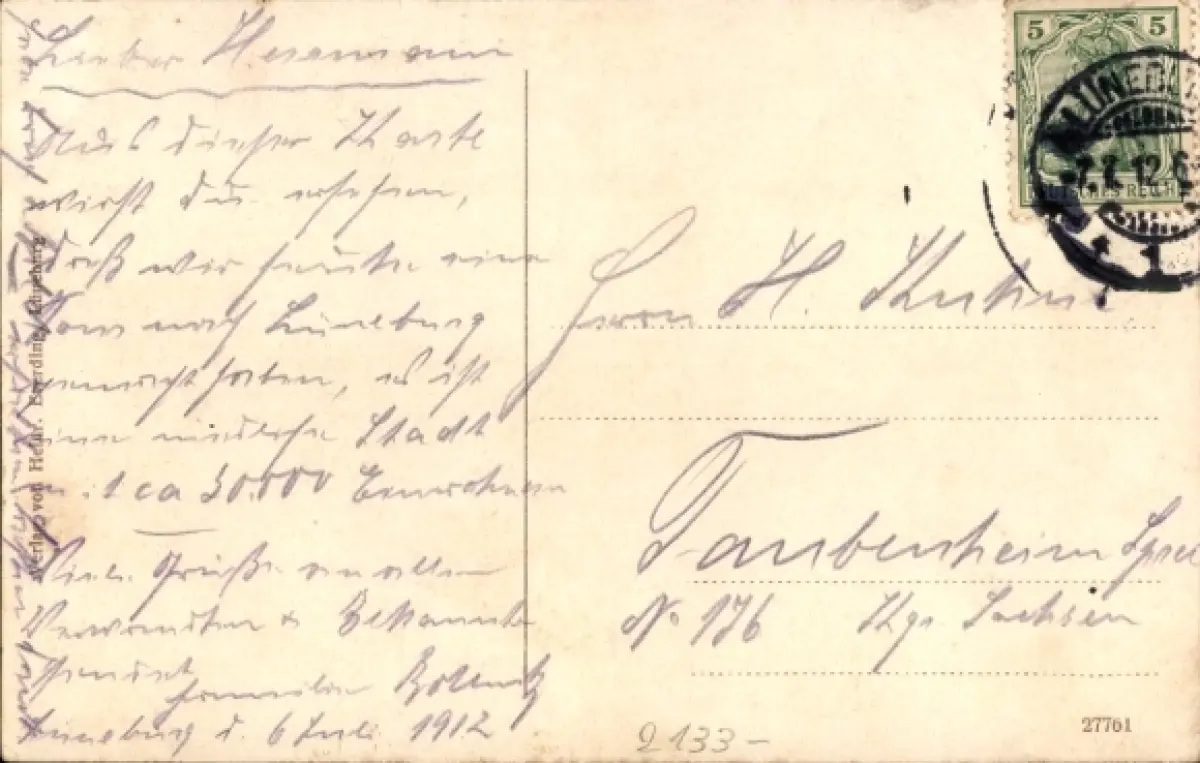 Lieber Hermann
Aus dieser Karte
wirst Du ersehen,
daß wir heute eine
Tour nach Lüneburg
gemacht haben, es ist
eine niedliche Stadt
ca 30.000 Einwohnern
Viele Grüße an allen
Verwandten & Bekannte
sendet
Familie
Lüneburg d. 6 Juli 1912
Verlag von Heinr. Eberding, Lüneburg
5 5
DEUTSCHES REICH
LÜNEBURG
7.7.12.6-
* 1
Herrn H.
Taubenheim Spree
No 176 Kgr. Sachsen
27761
2133-